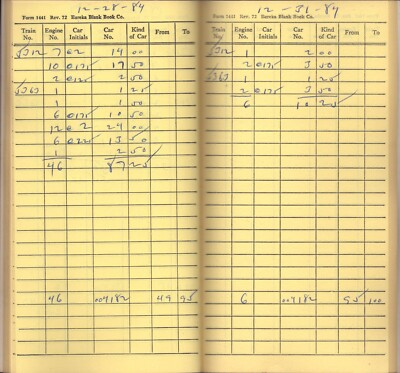 12-28-84
Form 7441 Rev. 72 Eureka Blank Book Co.
Train No. Engine No. Car Initials Car No. Kind of Car From To
5312 7 @2 14 00
10 @175 17 50
2 @125 2 50
5363 1 1 25
1 1 50
6 @175 10 50
12 @2 24 00
6 @225 13 50
1 2 50
46 87 25
46 004182 49 95
12-31-84
Form 7441 Rev. 72 Eureka Blank Book Co.
Train No. Engine No. Car Initials Car No. Kind of Car From To
5312 1 2 00
2 @175 3 50
5363 1 1 25
2 @175 3 50
6 10 25
6 004182 95 100